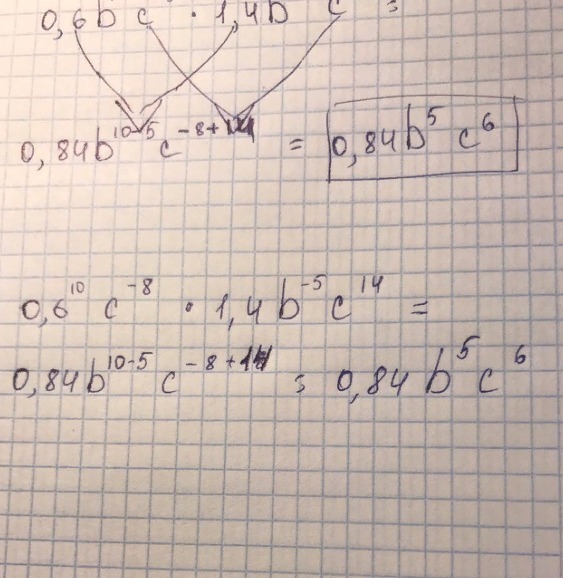 0,6b c · 1,4b c =
0,84b¹⁰⁻⁵ c⁻⁸⁺¹⁴ = 0,84b⁵ c⁶
0,6¹⁰ c⁻⁸ · 1,4 b⁻⁵ c¹⁴ =
0,84b¹⁰⁻⁵ c⁻⁸⁺¹⁴ = 0,84 b⁵ c⁶